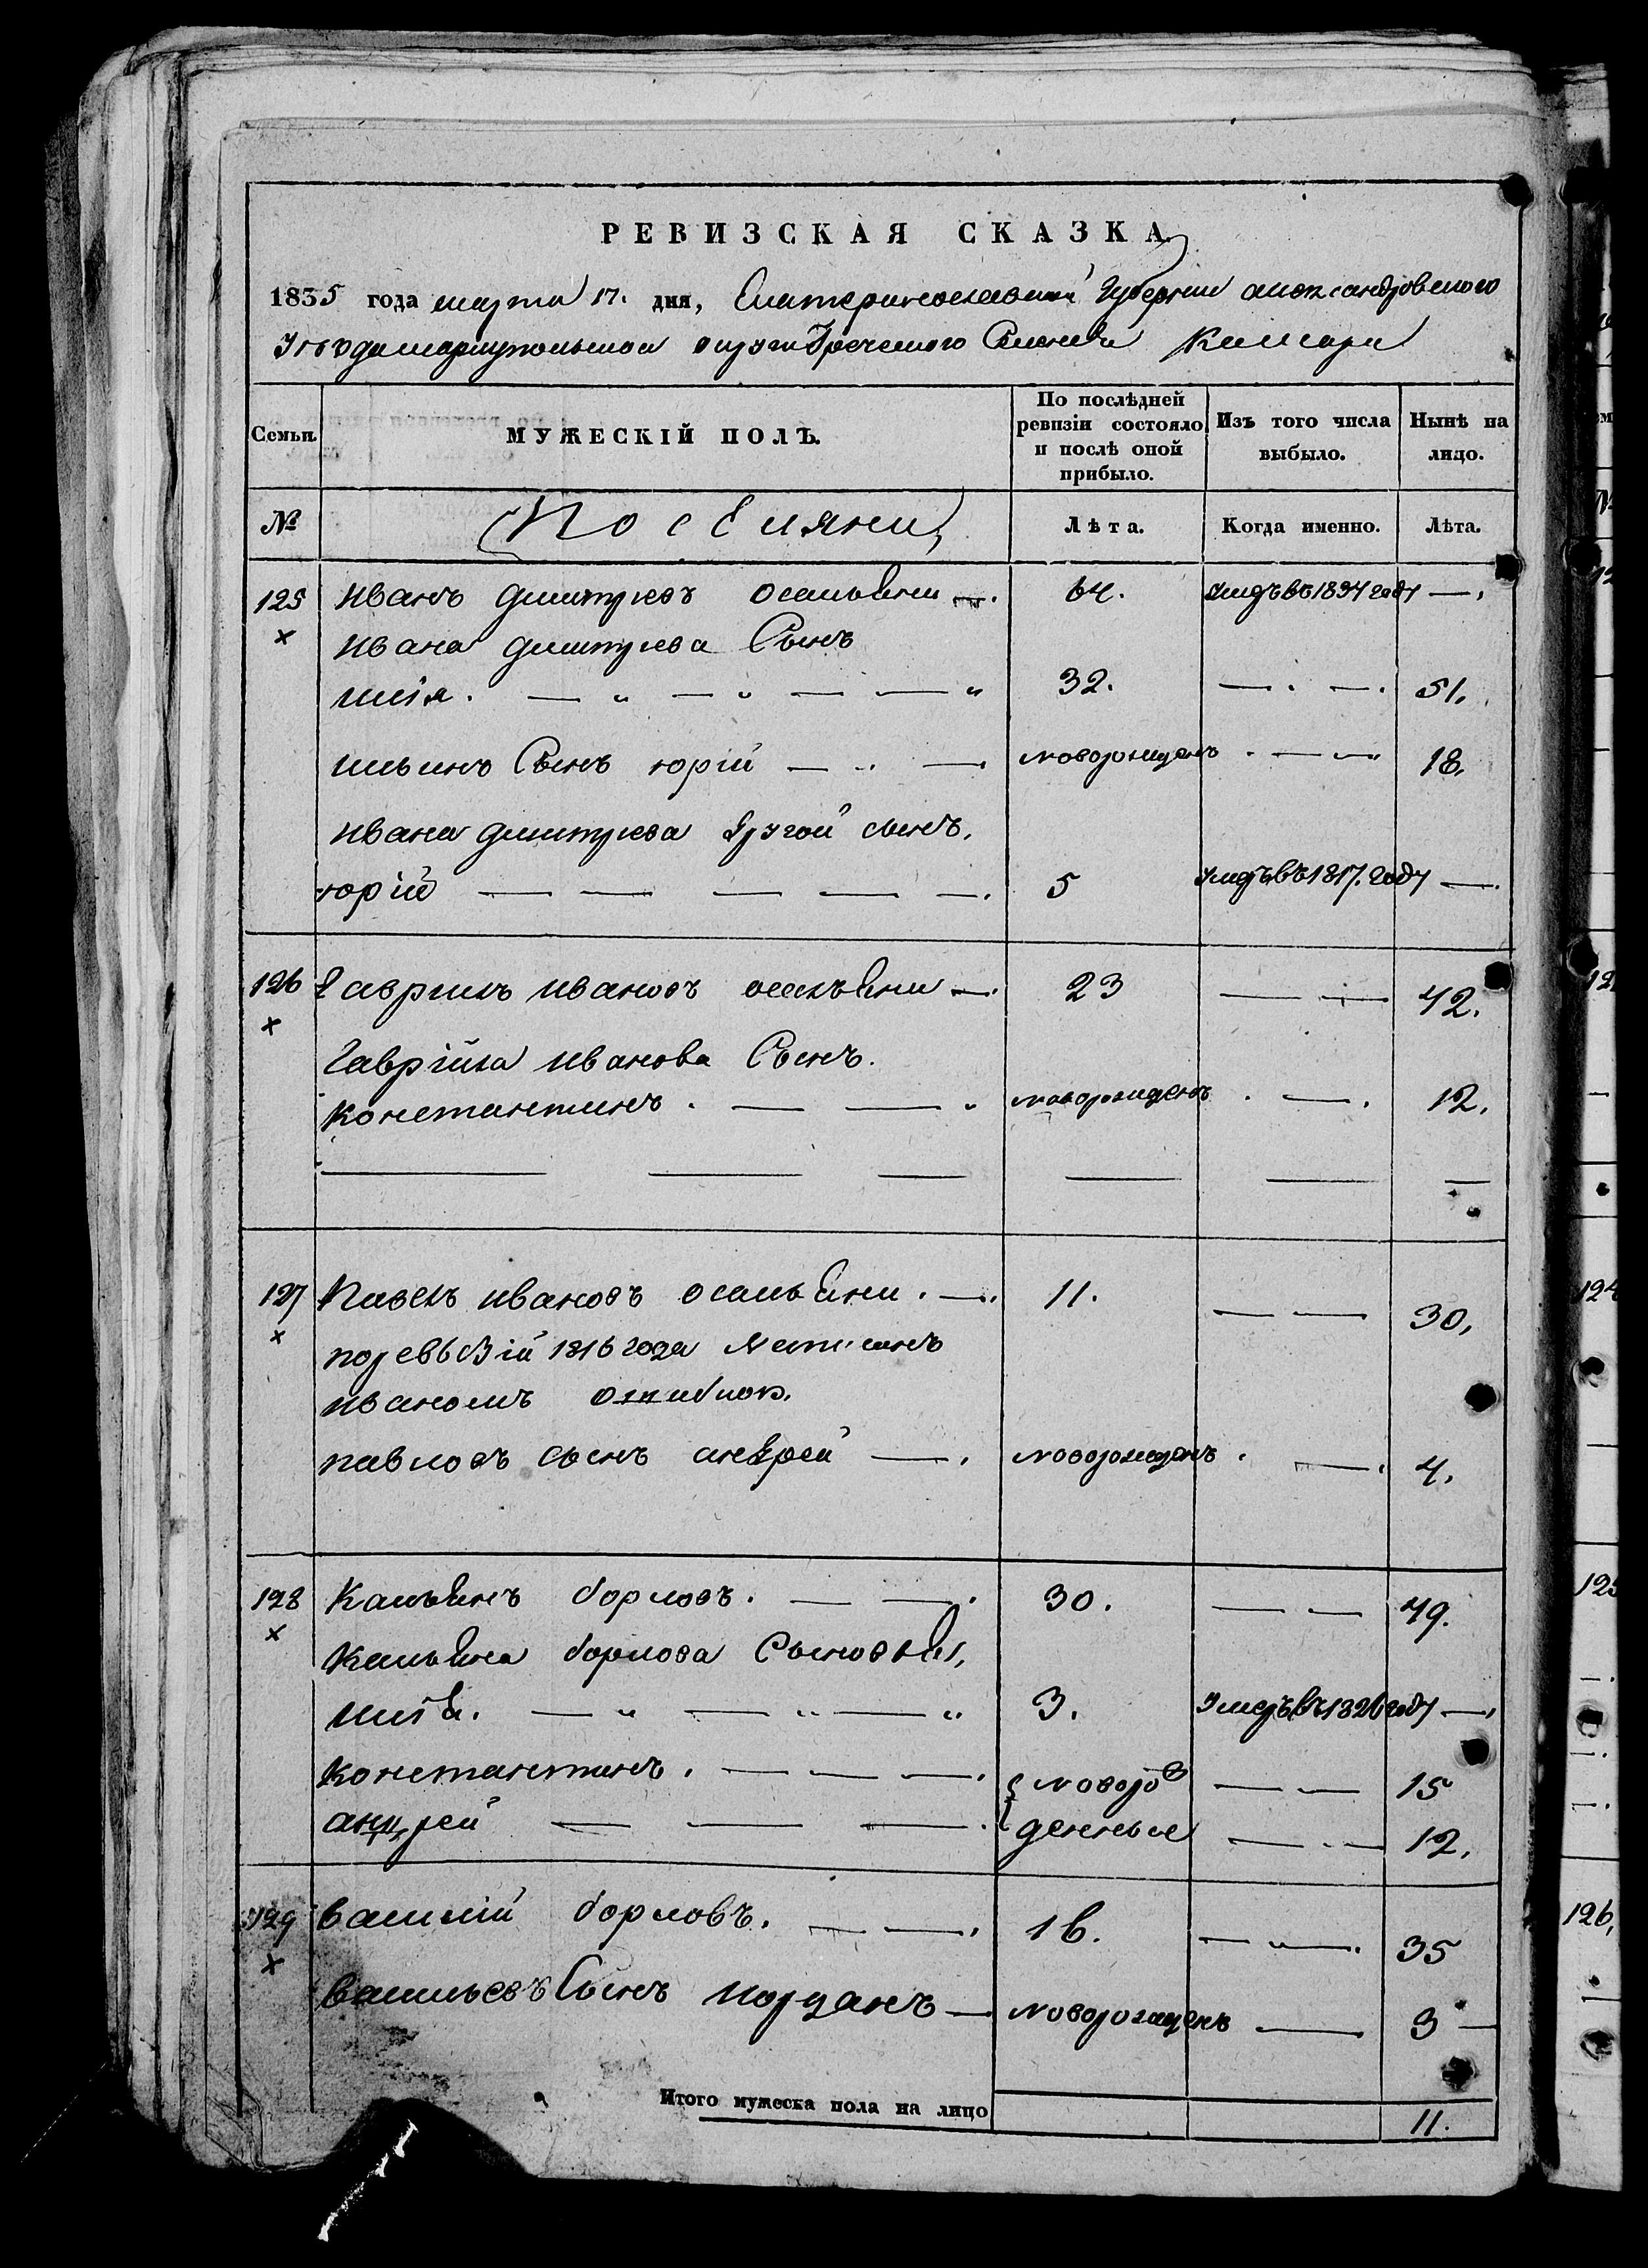 РЕВИЗСКАЯ СКАЗКА
1835 года марта 17. дня, Екатеринославской Губернии александровского
Уезда мариупольской округи Греческого Селения Камари
Семьи.
МУЖЕСКІЙ ПОЛЪ.
По послѣдней ревизіи состояло и послѣ оной прибыло.
Изъ того числа выбыло.
Нынѣ на лицо.
№
Поселяни
Лѣта.
Когда именно.
Лѣта.
125 иванъ дмитриевъ 64. умеръ въ 1834 году —
х ивана дмитриева Сынъ
илія. 32. — 51.
ильинъ Сынъ юрій — новорожденъ — 18.
ивана дмитриева другой сынъ,
юрій — 5 умеръ въ 1817. году —
126 Гаврилъ ивановъ 23 — 42.
х Гаврійла иванова Сынъ.
константинъ. — новорожденъ — 12.
127 Павелъ ивановъ 11. — 30,
х поревьзій 1816 года написанъ
иваномъ ошибкою.
павловъ сынъ андрей — новорожденъ — 4.
128 Кальинъ борловъ. — 30. — 49.
х Кальина борлова Сыновья,
илья. — 3. умеръ въ 1826 году —
константинъ. — новорож — 15
андрей — денные — 12.
129 василій борловъ. — 16. — 35
х васильевъ Сынъ иорданъ — новорожденъ — 3 —
Итого мужеска пола на лицо 11.